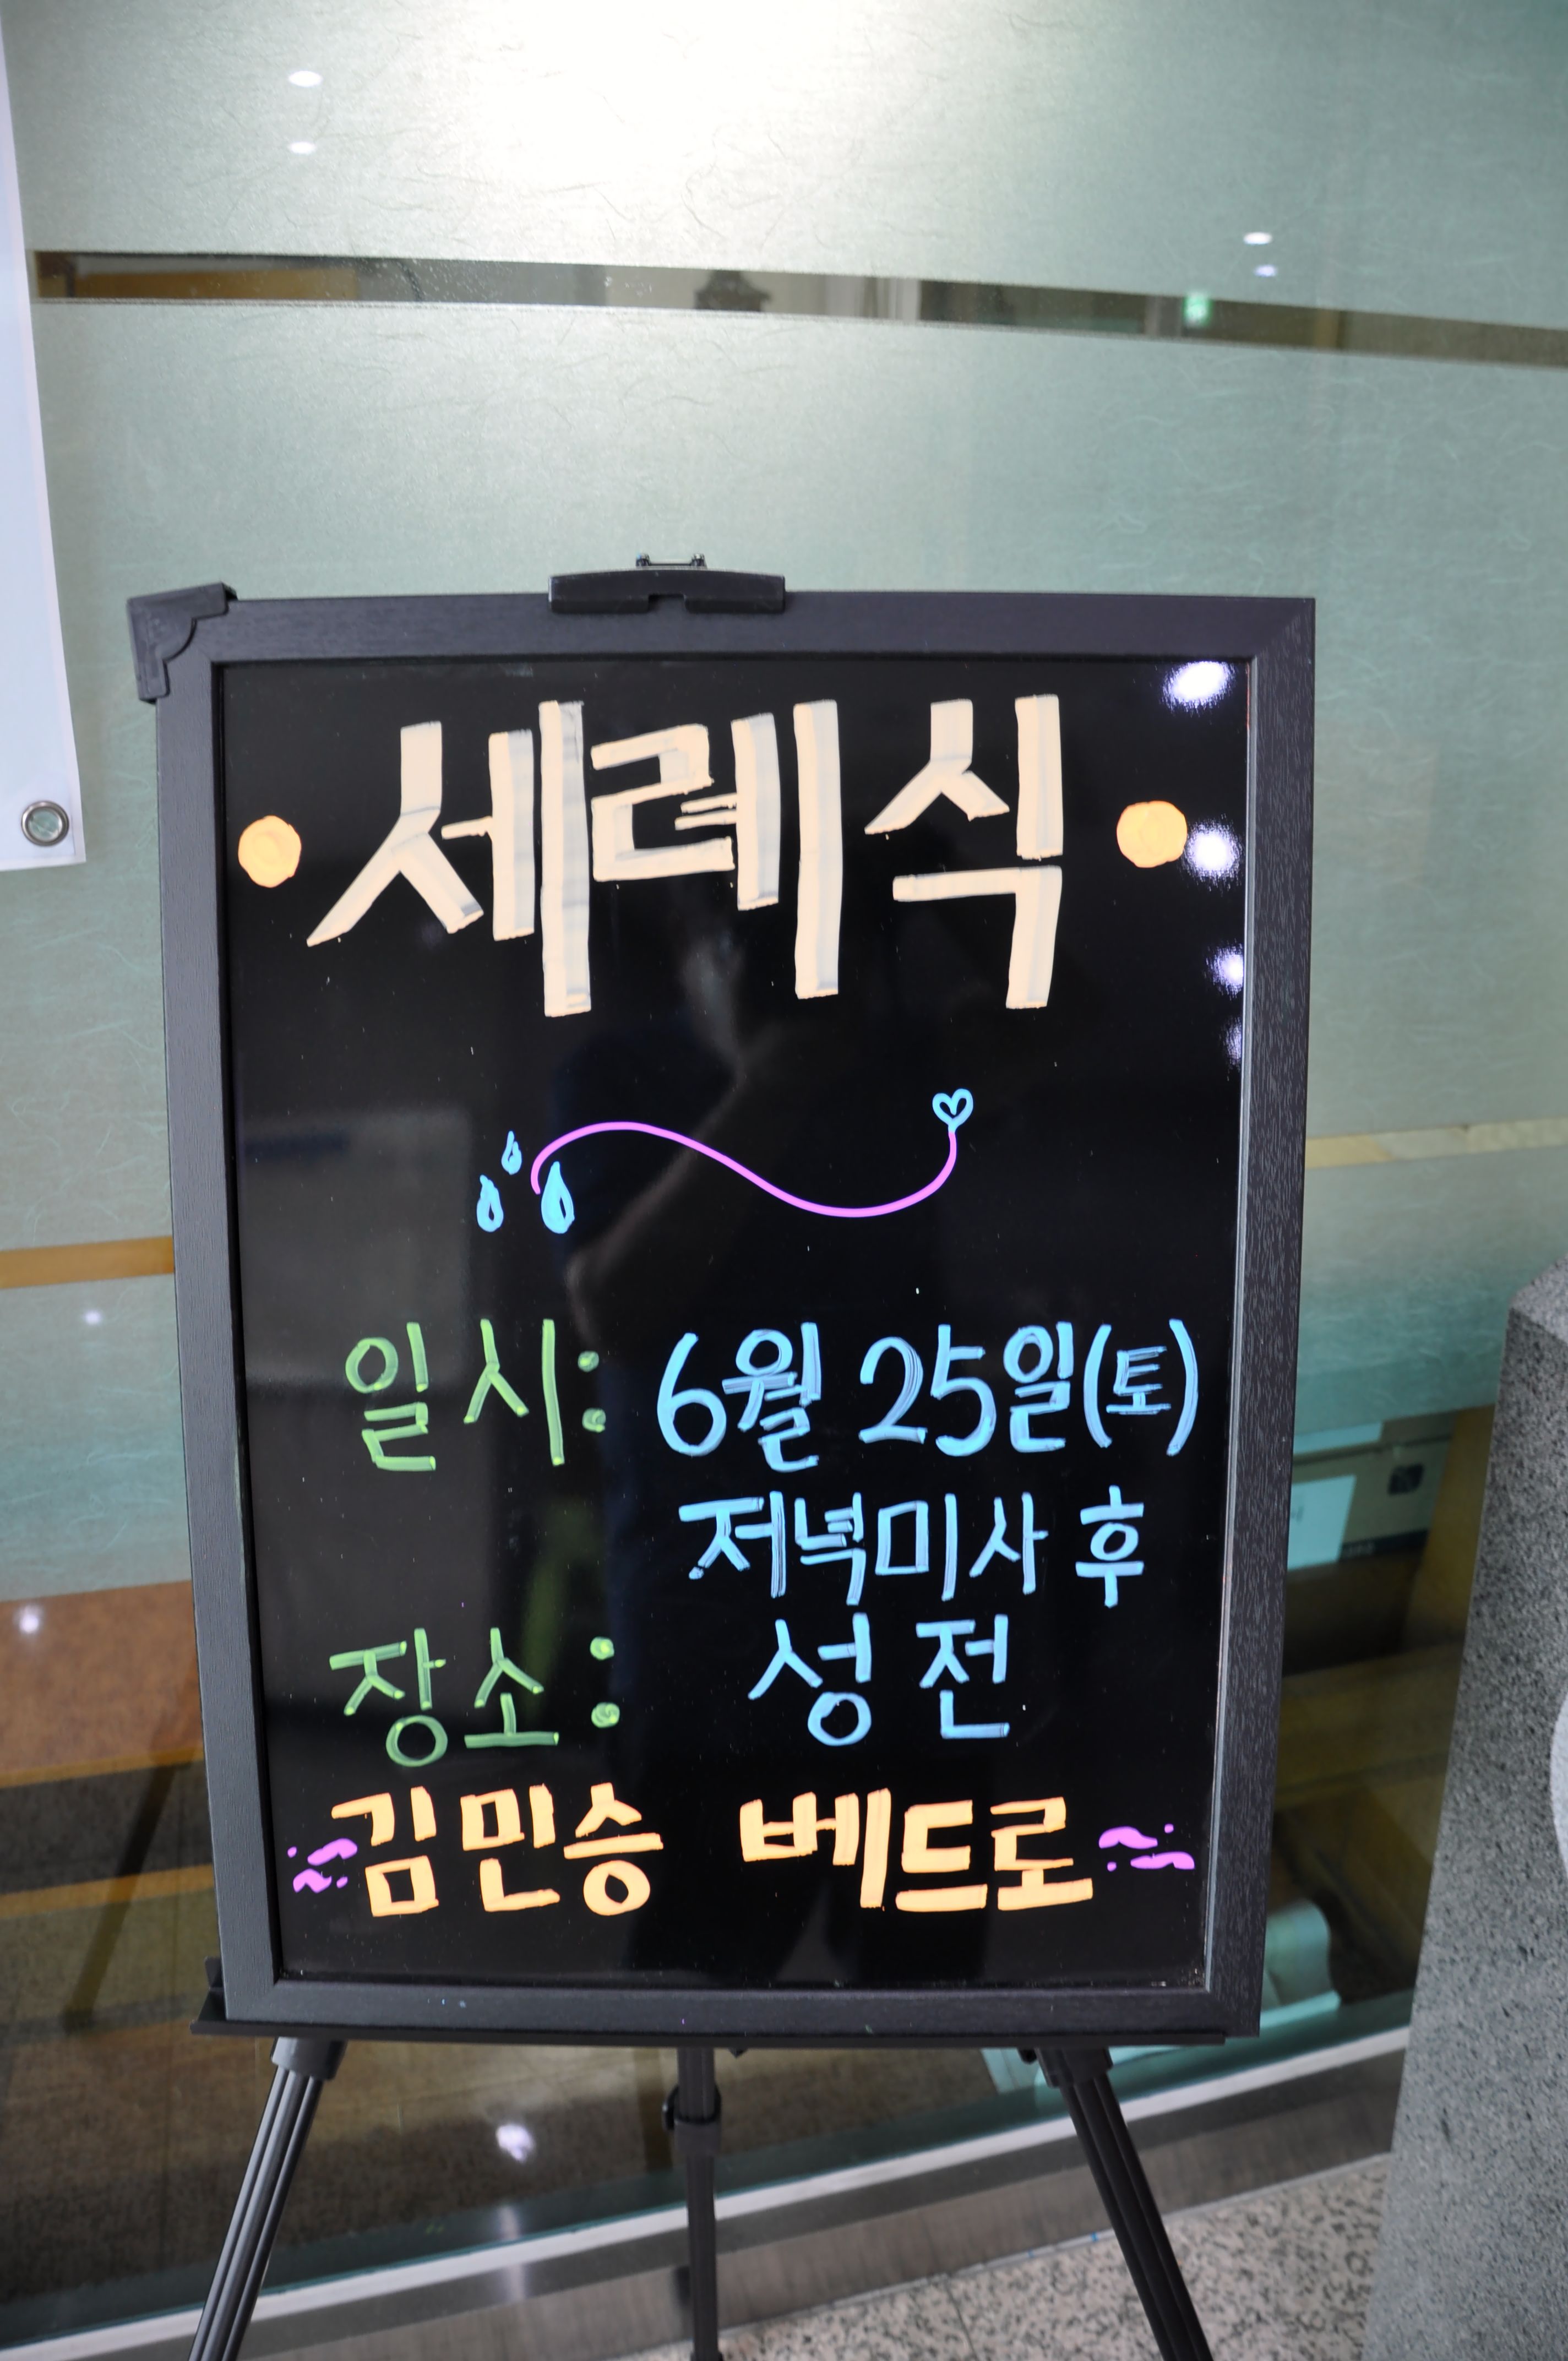 세례식
일시: 6월 25일(토)
저녁미사 후
장소: 성전
김민승 베드로